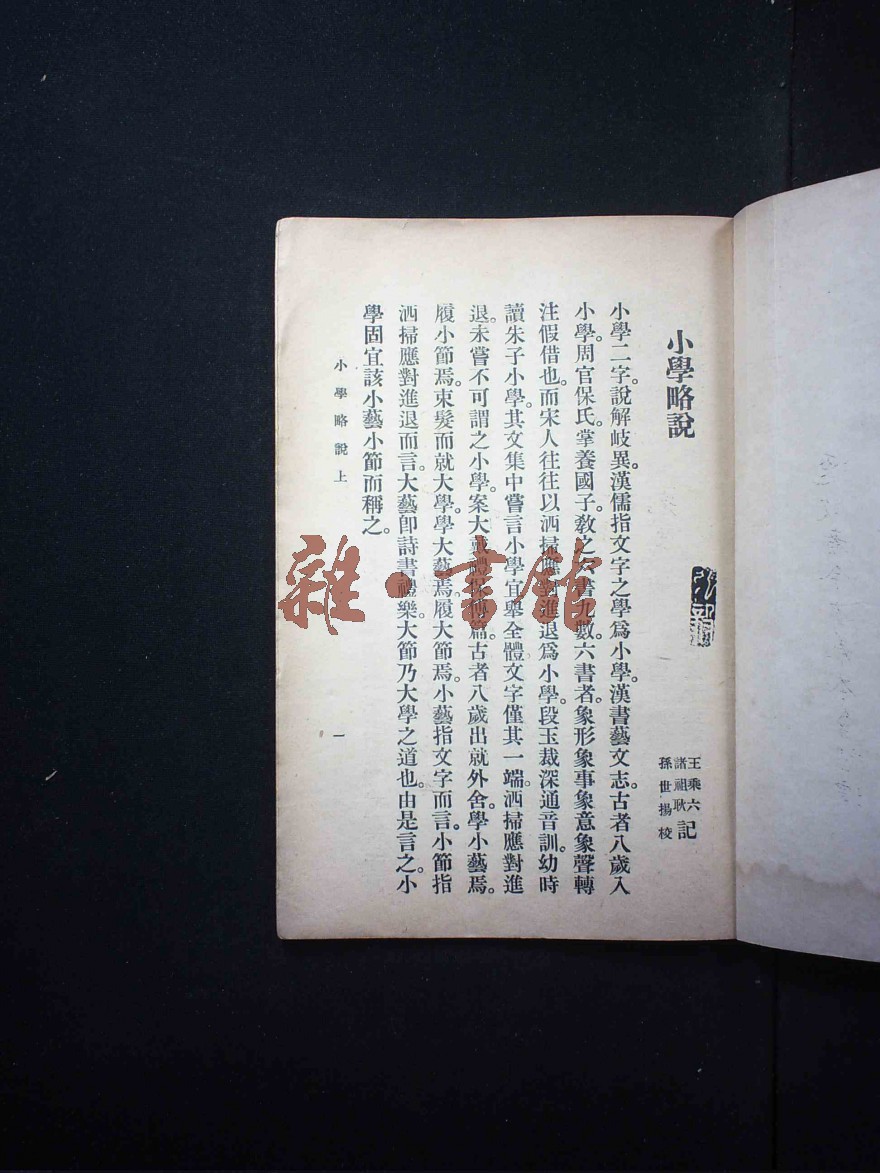 小學略說
王乘六
諸祖耿 記
孫世揚 校
小學二字。說解歧異。漢儒指文字之學爲小學。漢書藝文志。古者八歲入
小學。周官保氏。掌養國子。敎之六書九數。六書者。象形象事象意象聲轉
注假借也。而宋人往往以洒掃應對進退爲小學。段玉裁深通音訓。幼時
讀朱子小學。其文集中嘗言小學宜舉全體。文字僅其一端。洒掃應對進
退。未嘗不可謂之小學。案大戴禮保傅篇。古者八歲出就外舍。學小藝焉。
履小節焉。束髮而就大學。學大藝焉。履大節焉。小藝指文字而言。小節指
洒掃應對進退而言。大藝卽詩書禮樂。大節乃大學之道也。由是言之。小
學固宜該小藝小節而稱之。
小學略說上
一
雜·書館